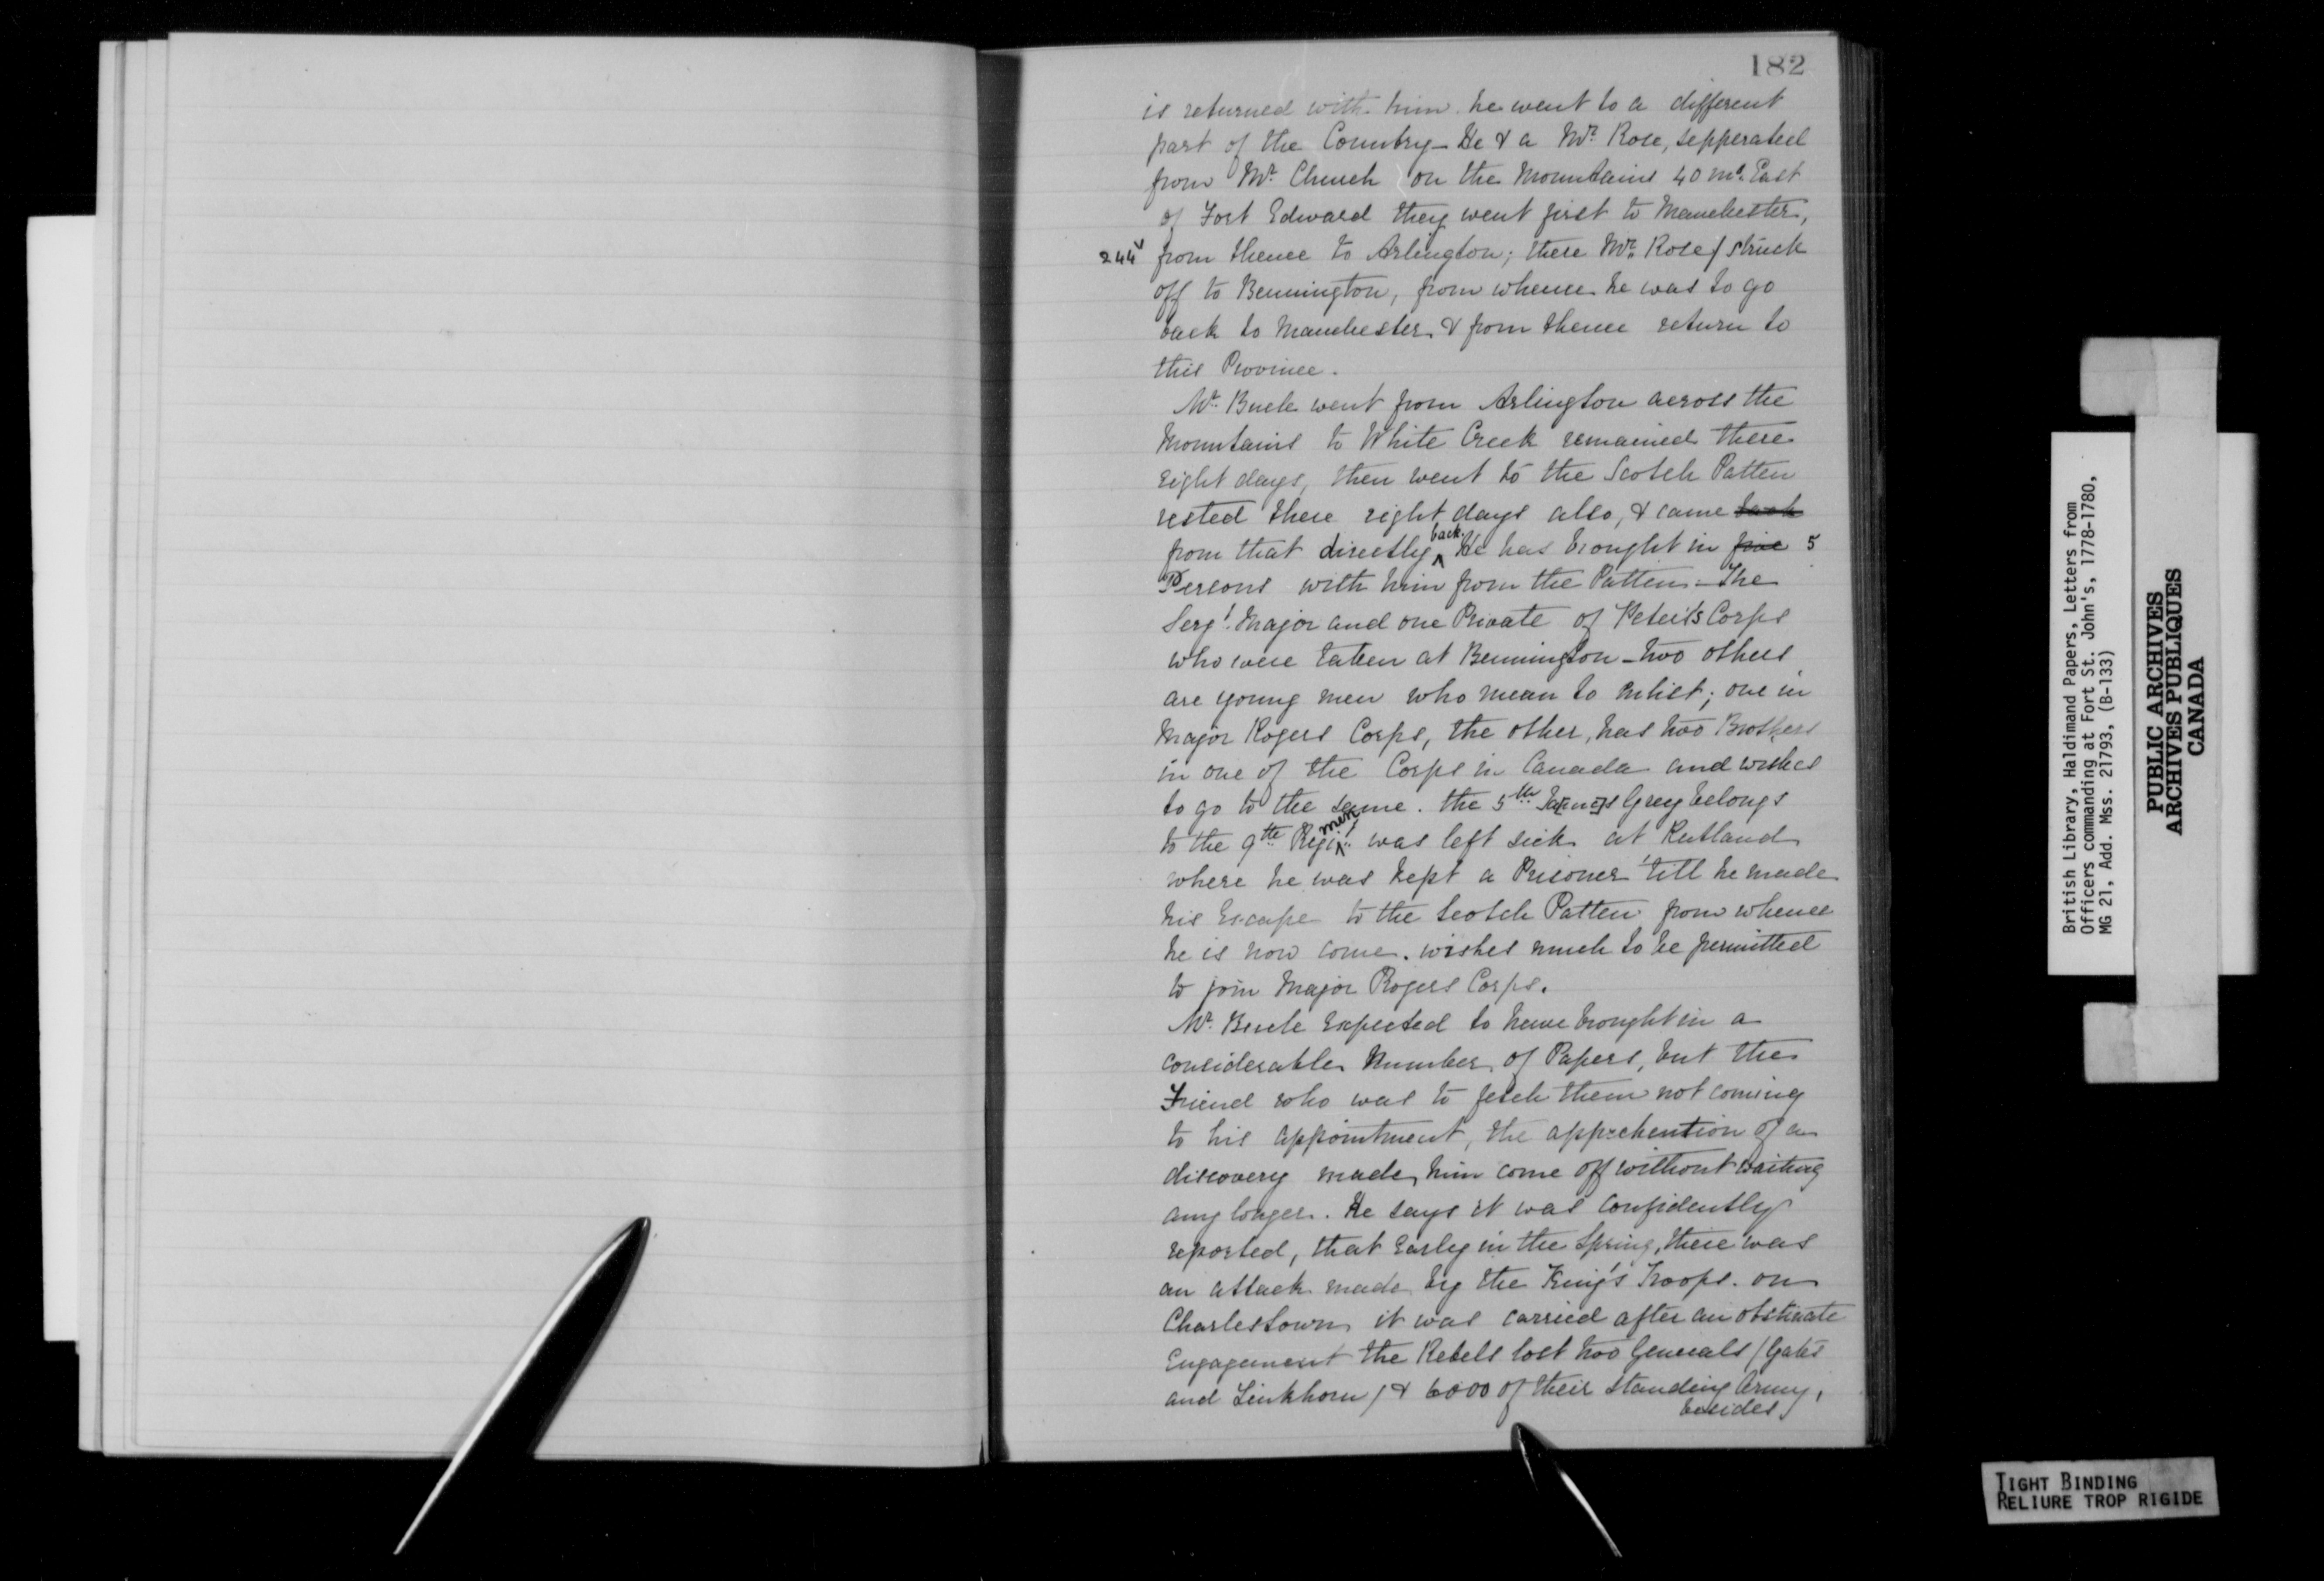 182
is returned with him he went to a different
part of the Country_ He & a Mr. Rose, sepperated
from Mr. Church on the Mountains 40 ms. East
of Fort Edward they went first to Manchester,
244v from thence to Arlington; there Mr. Rose / struck
off to Bennington, from whence he was to go
back to Manchester & from thence return to
this Province.
Mr. Buele went from Arlington across the
Mountains to White Creek remained there
eight days, then went to the Scotch Patten
rested there eight days also, & came back
from that directly back He has brought in five 5
Persons with him from the Patten - The
Sergt. Major and one Private of Peter's Corps
who were taken at Bennington - two others
are young men who mean to enlist; one in
Major Rogers Corps, the other, has two Brothers
in one of the Corps in Canada and wishes
to go to the same. the 5th Ja[me]s Grey belongs
to the 9th Regiment was left sick at Rutland
where he was kept a Prisoner 'till he made
his Escape to the Scotch Patten from whence
he is now come. wishes much to be permitted
to join Major Rogers Corps.
Mr. Buele Expected to have brought in a
considerable Number of Papers, but the
Friend who was to fetch them not coming
to his appointment, the apprehention of a
discovery made him come off without waiting
any longer. He says it was confidently
reported, that Early in the Spring, there was
an attack made by the King's Troops. on
Charlestown it was carried after an obstinate
Engagement the Rebels lost two Generals / Gates
and Linkhorn / & 6000 of their standing Army,
besides
British Library, Haldimand Papers, Letters from
Officers commanding at Fort St. John's, 1778-1780,
MG 21, Add. Mss. 21793, (B-133)
PUBLIC ARCHIVES
ARCHIVES PUBLIQUES
CANADA
TIGHT BINDING
RELIURE TROP RIGIDE